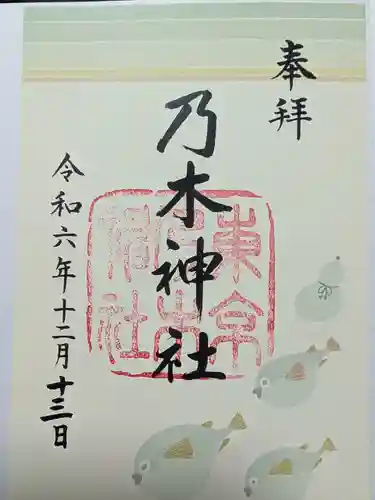 奉拝
乃木神社
東京乃木神社
令和六年十二月十三日